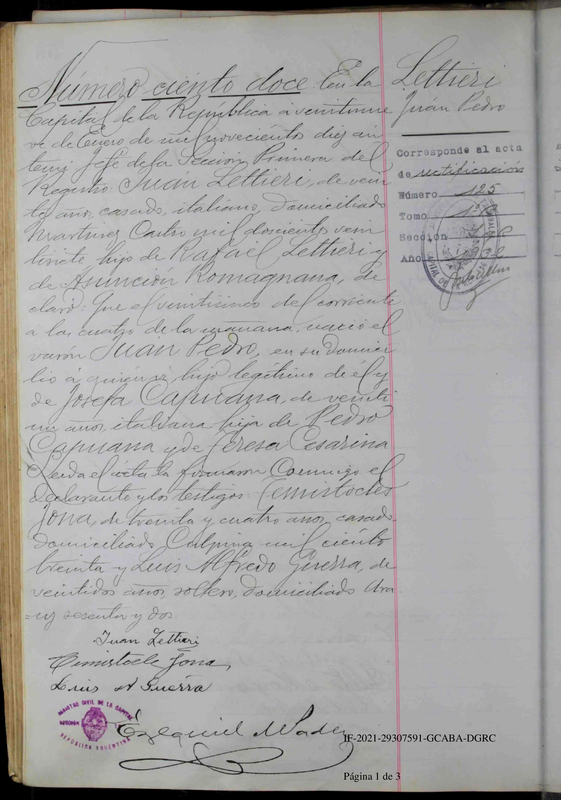 Número ciento doce En la
Capital de la República á veintinue
ve de Enero de mil novecientos diez, an
te mi Jefe de la Sección Primera del
Registro, Juán Lettieri, de vein
ta años, casado, italiano, domiciliado
Martinez Castro mil doscientos vein
tisiete hijo de Rafael Lettieri y
de Asunción Romagnana, de
claró: Que el veinticinco del corriente
á las cuatro de la mañana, nació el
varón Juán Pedro, en su domici
lio á quién es hijo legítimo de él y
de Josefa Capuana, de veinti
un años, italiana hija de Pedro
Capuana y de Teresa Cesarina
Leída el acta la firmaron Conmigo el
declarante y los testigos: Temistocles
Jona, de treinta y cuatro años, casado,
domiciliado mil ciento
treinta y Luis Alfredo Guerra, de
veintidos años, soltero, domiciliado Ara
uz sesenta y dos
Juan Lettieri
Temistocle Jona
Luis A Guerra
Ezequiel
REGISTRO CIVIL DE LA CAPITAL
REPÚBLICA ARGENTINA
Lettieri
Juán Pedro
Corresponde al acta
de rectificación
Número 125
Tomo 1º
Sección
Año
IF-2021-29307591-GCABA-DGRC
Página 1 de 3